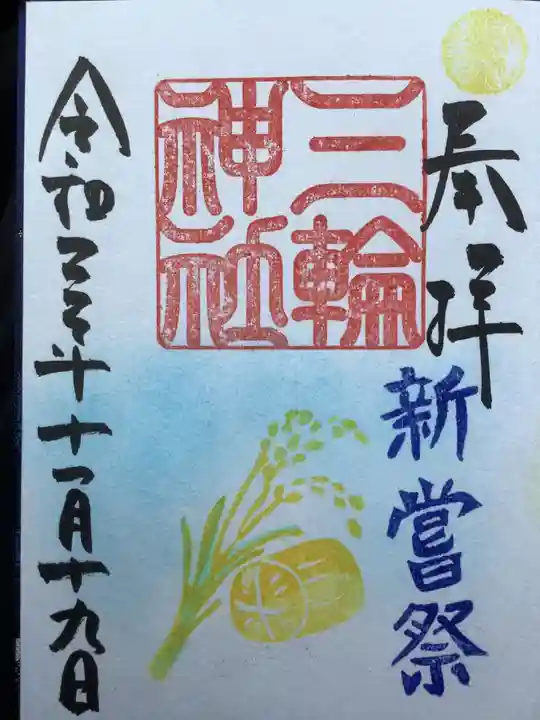 奉拝
新嘗祭
三輪
神社
令和年十一月十九日